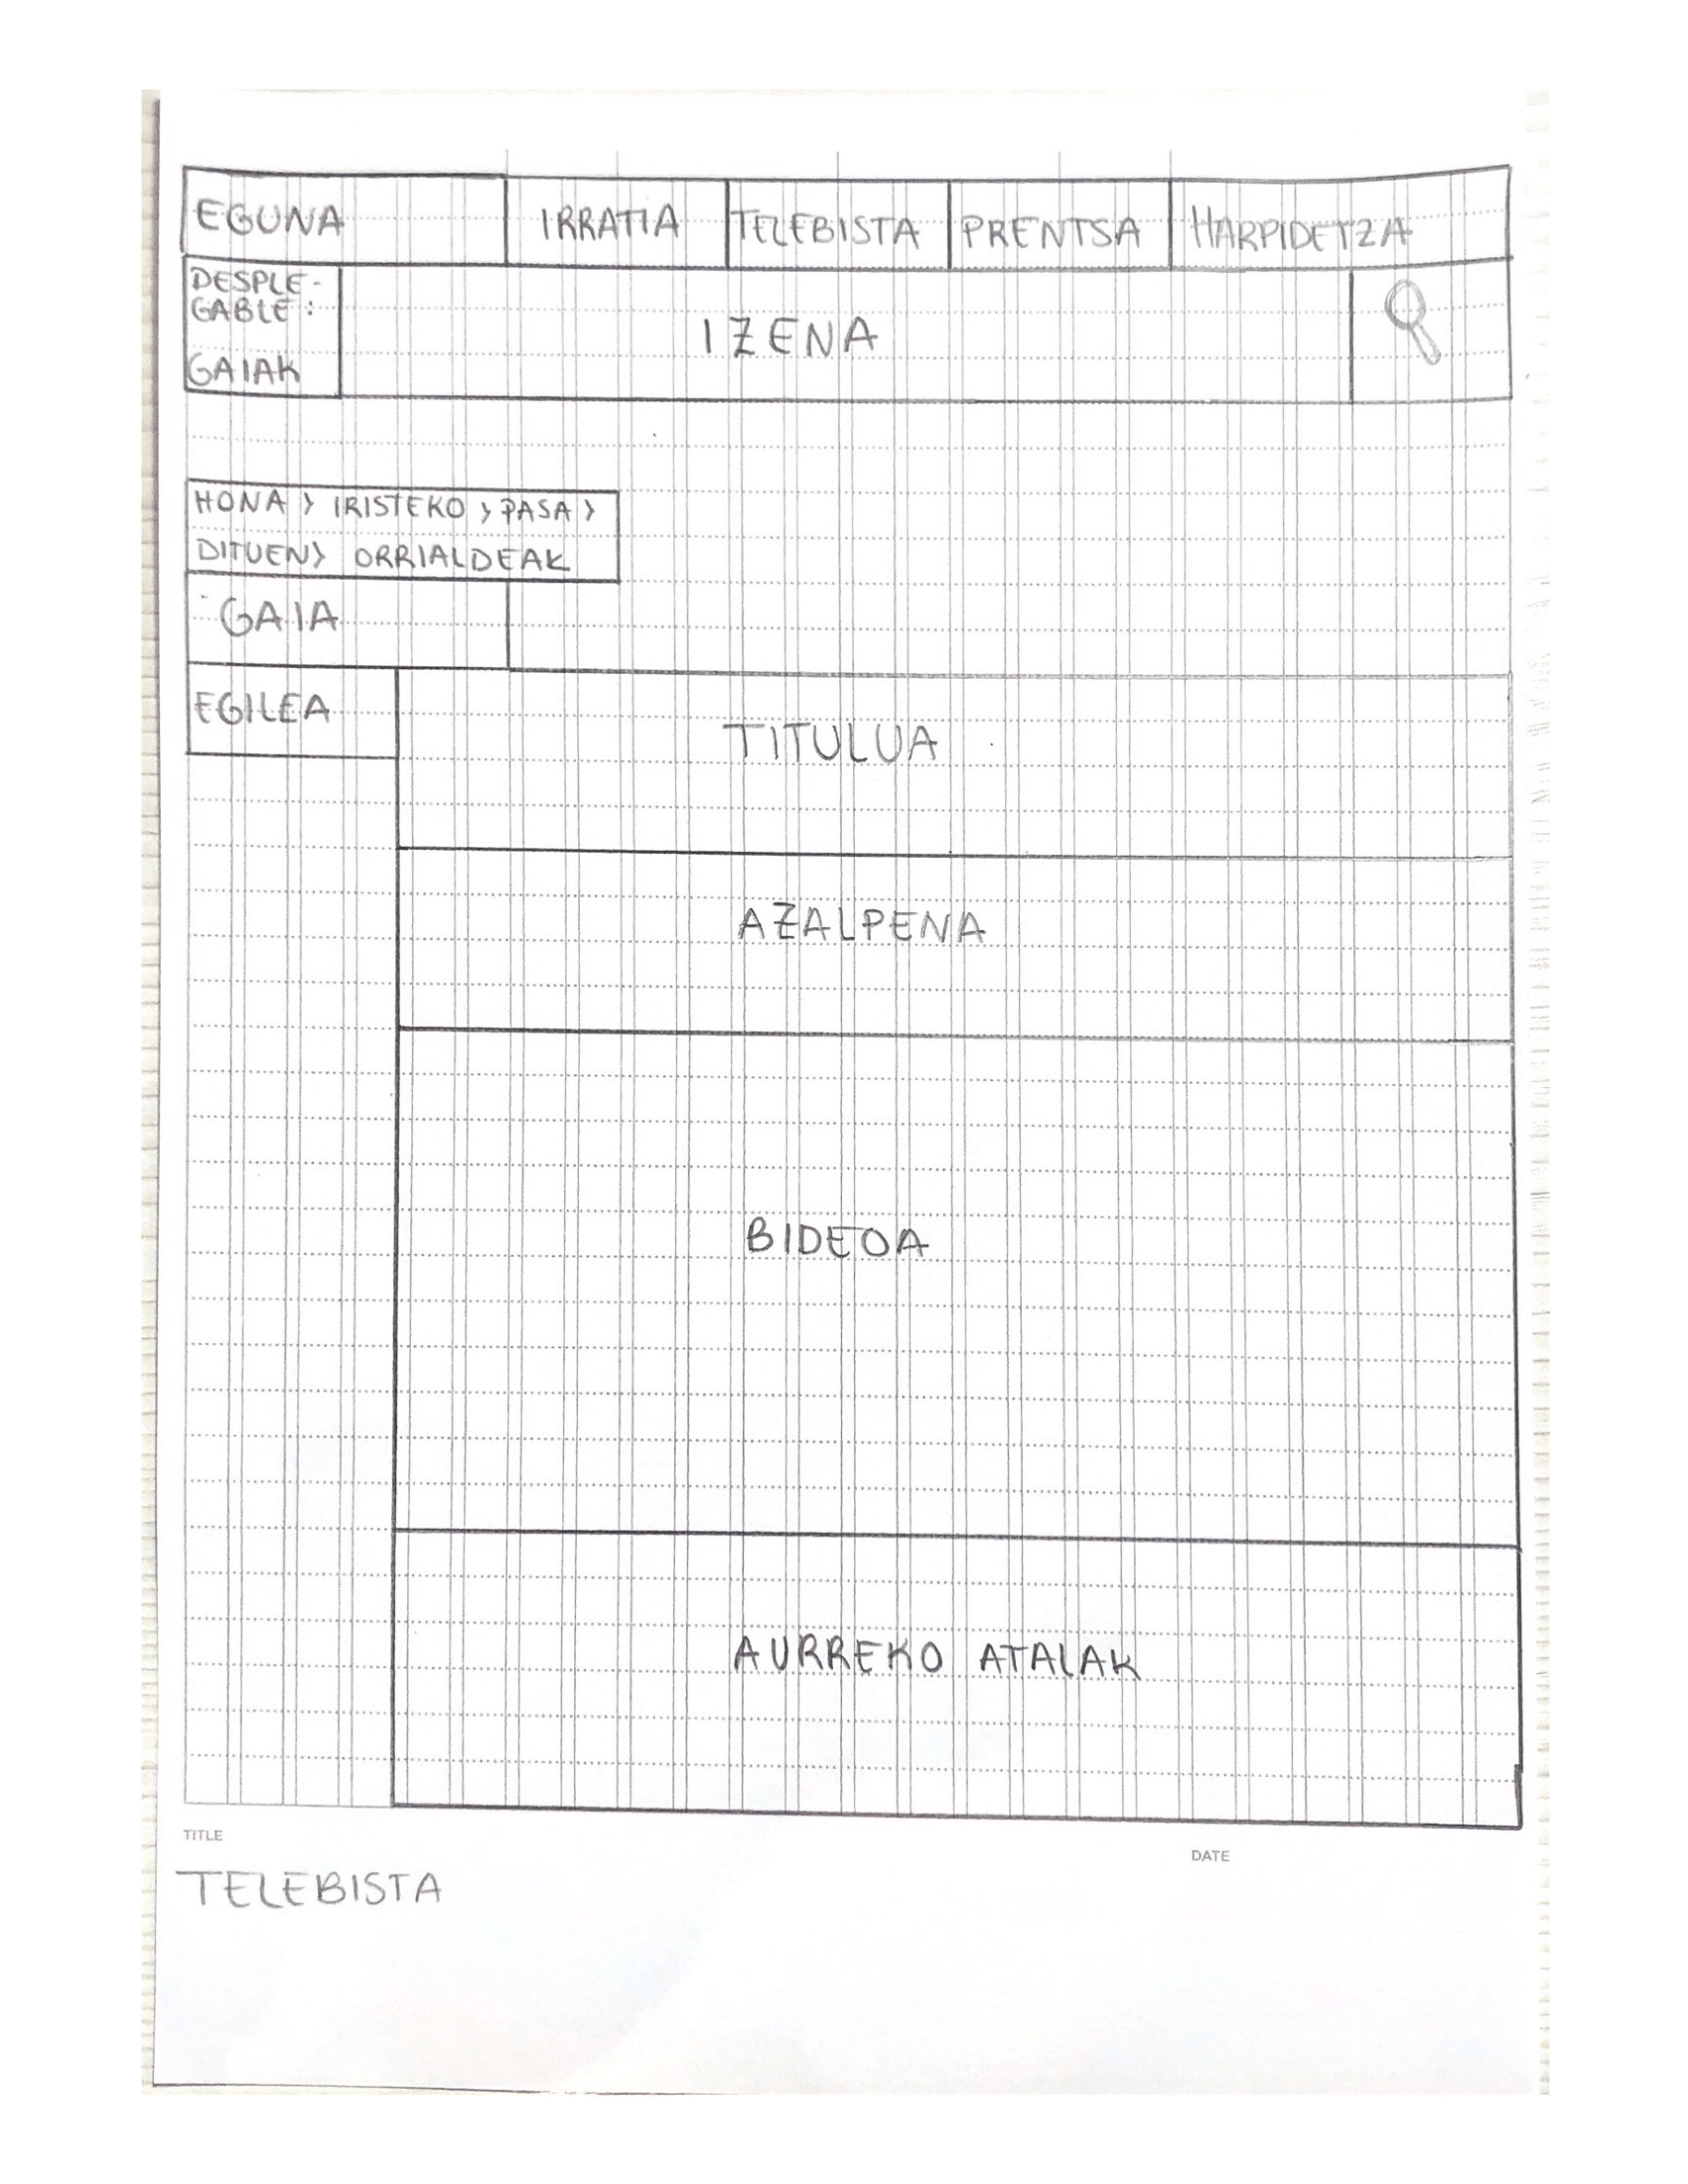 EGUNA IRRATIA TELEBISTA PRENTSA HARPIDETZA
DESPLE-
GABLE:
GAIAK
IZENA
HONA > IRISTEKO > PASA >
DITUEN> ORRIALDEAK
GAIA
EGILEA
TITULUA
AZALPENA
BIDEOA
AURREKO ATALAK
TITLE
DATE
TELEBISTA